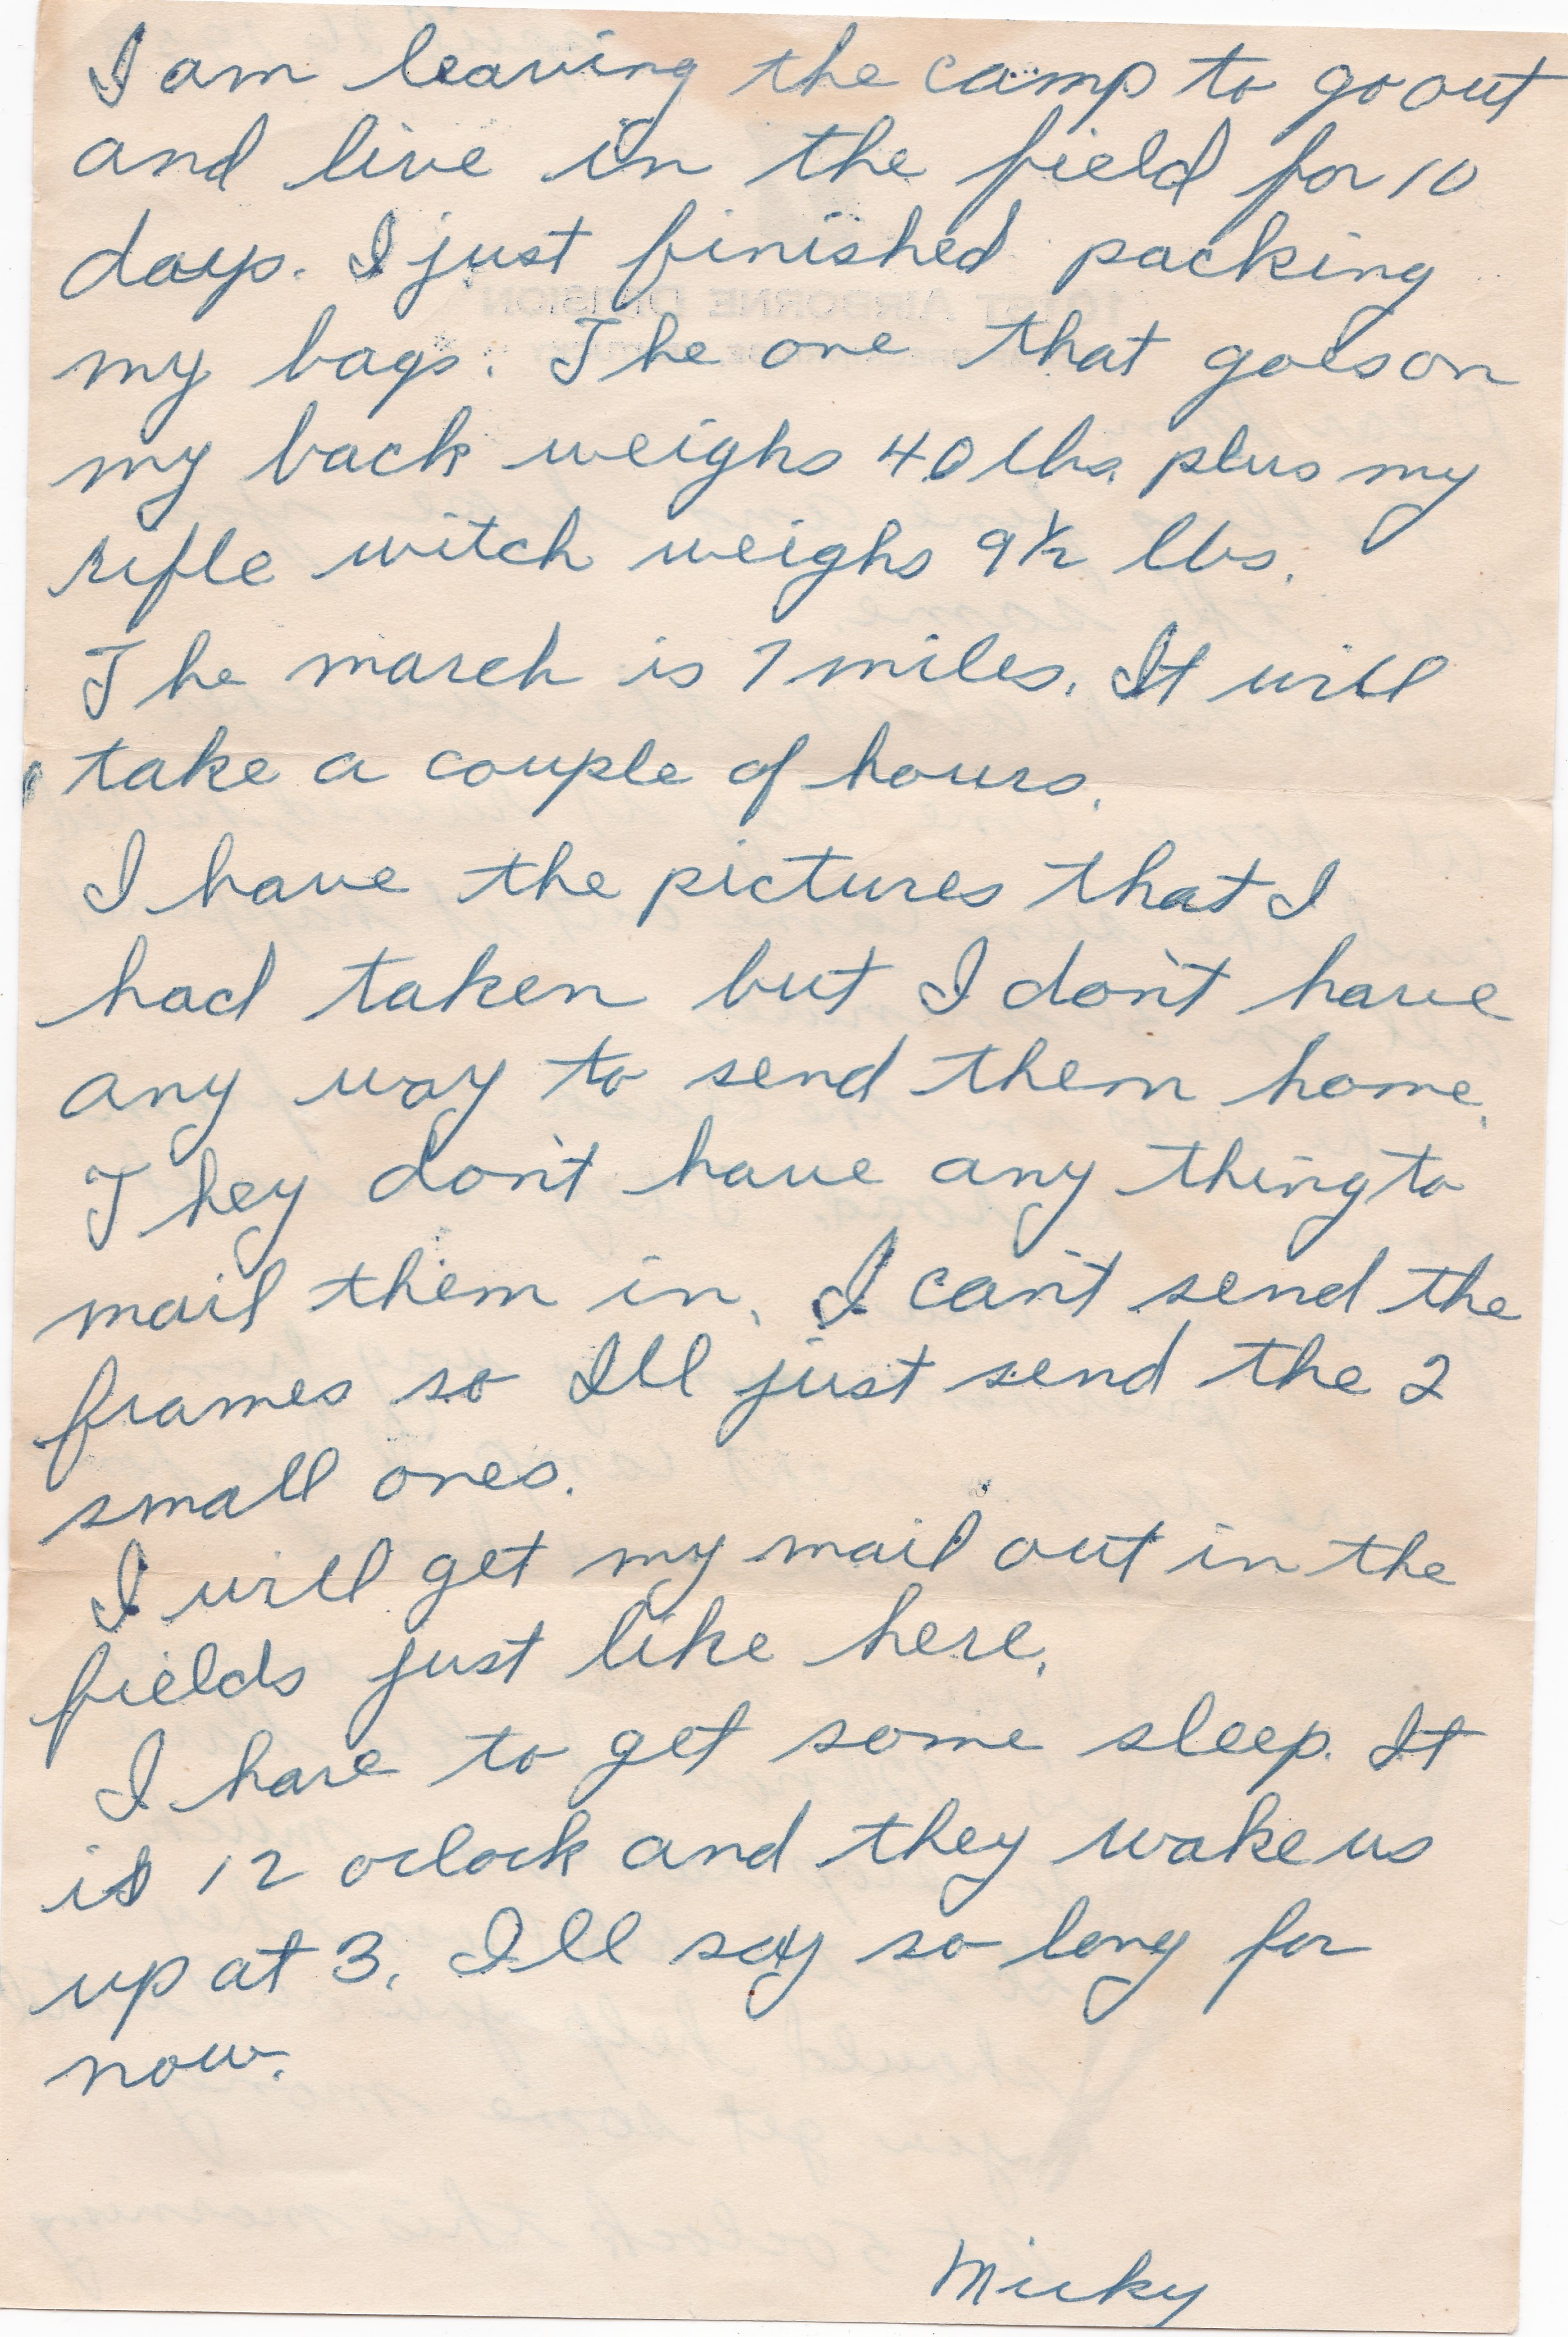 I am leaving the camp to go out
and live in the field for 10
days. I just finished packing
my bags. The one that goes on
my back weighs 40 lbs. plus my
rifle witch weighs 9½ lbs.
The march is 7 miles. It will
take a couple of hours.
I have the pictures that I
had taken but I don't have
any way to send them home.
They don't have any thing to
mail them in. I can't send the
frames so Ill just send the 2
small ones.
I will get my mail out in the
fields just like here.
I have to get some sleep. It
is 12 oclock and they wake us
up at 3. Ill say so long for
now.
Micky